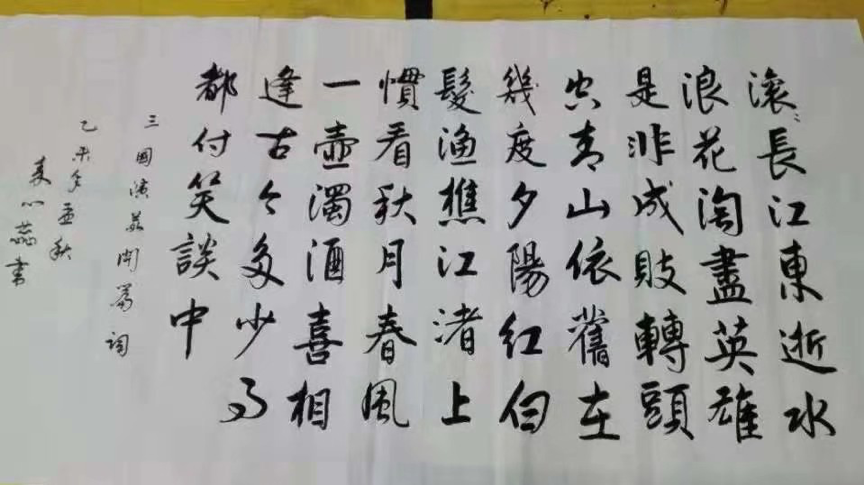 滚〻長江東逝水
浪花淘盡英雄
是非成敗轉頭
空青山依舊在
幾度夕陽紅白
髮渔樵江渚上
慣看秋月春風
一壺濁酒喜相
逢古今多少事
都付笑談中
三國演義開篇詞
乙未年孟秋
心蕊書